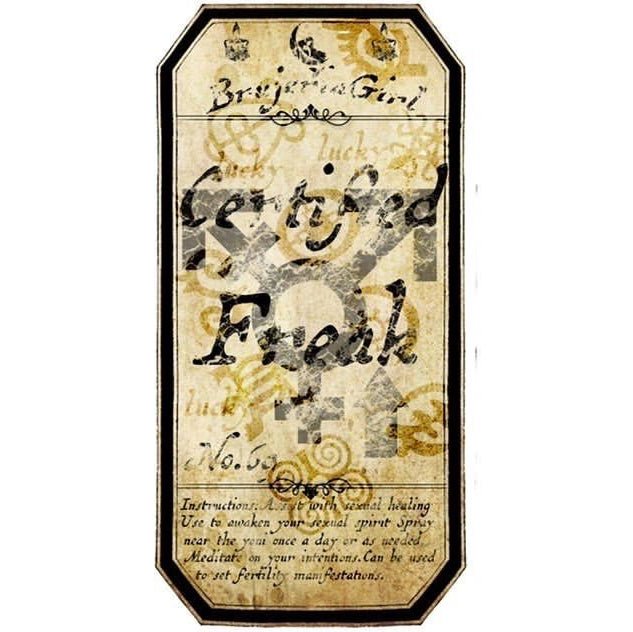 BrujeriaGirl
lucky lucky
Certified
Freak
lucky
No. 69
Instructions: Assist with sexual healing
Use to awaken your sexual spirit Spray
near the yoni once a day or as needed
Meditate on your intentions. Can be used
to set fertility manifestations.